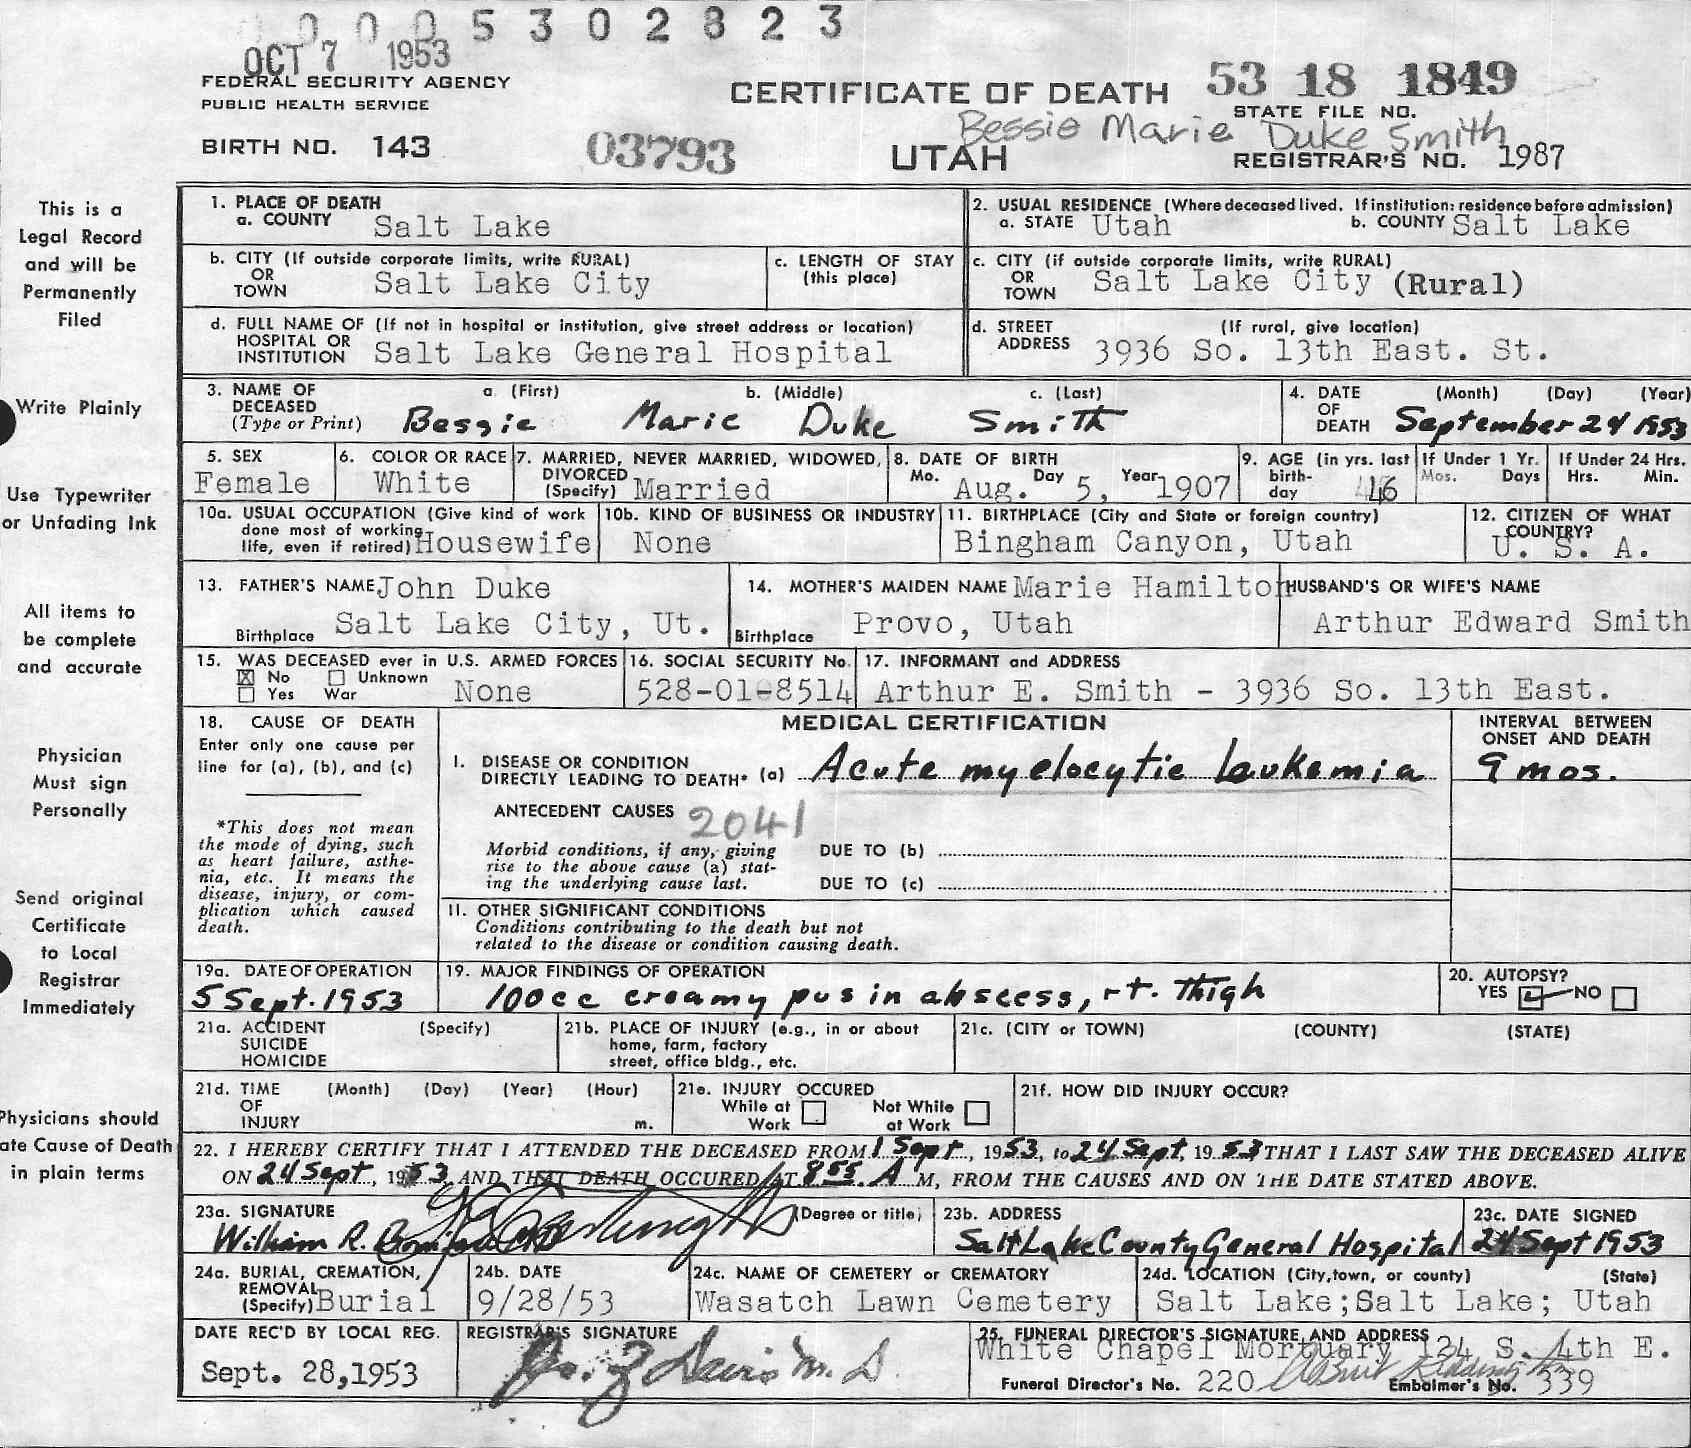 0005302823
OCT 7 1953
FEDERAL SECURITY AGENCY
PUBLIC HEALTH SERVICE
BIRTH NO. 143
03793
CERTIFICATE OF DEATH
UTAH
53 18 1849
STATE FILE NO.
Bessie Marie Duke Smith
REGISTRAR'S NO. 1987
This is a
Legal Record
and will be
Permanently
Filed
Write Plainly
Use Typewriter
or Unfading Ink
All items to
be complete
and accurate
Physician
Must sign
Personally
Send original
Certificate
to Local
Registrar
Immediately
Physicians should
ate Cause of Death
in plain terms
1. PLACE OF DEATH
a. COUNTY Salt Lake
2. USUAL RESIDENCE (Where deceased lived. If institution: residence before admission)
a. STATE Utah b. COUNTY Salt Lake
b. CITY (If outside corporate limits, write RURAL)
OR
TOWN Salt Lake City
c. LENGTH OF STAY
(this place)
c. CITY (if outside corporate limits, write RURAL)
OR
TOWN Salt Lake City (Rural)
d. FULL NAME OF (If not in hospital or institution, give street address or location)
HOSPITAL OR
INSTITUTION Salt Lake General Hospital
d. STREET (If rural, give location)
ADDRESS 3936 So. 13th East. St.
3. NAME OF a (First) b. (Middle) c. (Last)
DECEASED
(Type or Print) Bessie Marie Duke Smith
4. DATE (Month) (Day) (Year)
OF
DEATH September 24 1953
5. SEX
Female
6. COLOR OR RACE
White
7. MARRIED, NEVER MARRIED, WIDOWED,
DIVORCED
(Specify) Married
8. DATE OF BIRTH
Mo. Aug. Day 5, Year 1907
9. AGE (in yrs. last
birth-
day 46
If Under 1 Yr.
Mos. Days
If Under 24 Hrs.
Hrs. Min.
10a. USUAL OCCUPATION (Give kind of work
done most of working
life, even if retired) Housewife
10b. KIND OF BUSINESS OR INDUSTRY
None
11. BIRTHPLACE (City and State or foreign country)
Bingham Canyon, Utah
12. CITIZEN OF WHAT
COUNTRY?
U. S. A.
13. FATHER'S NAME John Duke
Birthplace Salt Lake City, Ut.
14. MOTHER'S MAIDEN NAME Marie Hamilto
Birthplace Provo, Utah
HUSBAND'S OR WIFE'S NAME
Arthur Edward Smith
15. WAS DECEASED ever in U.S. ARMED FORCES
No Unknown
Yes War None
16. SOCIAL SECURITY No.
528-01-8514
17. INFORMANT and ADDRESS
Arthur E. Smith - 3936 So. 13th East.
18. CAUSE OF DEATH
Enter only one cause per
line for (a), (b), and (c)
*This does not mean
the mode of dying, such
as heart failure, asthe-
nia, etc. It means the
disease, injury, or com-
plication which caused
death.
MEDICAL CERTIFICATION
I. DISEASE OR CONDITION
DIRECTLY LEADING TO DEATH* (a) Acute myelocytic leukemia
INTERVAL BETWEEN
ONSET AND DEATH
9 mos.
ANTECEDENT CAUSES 2041
Morbid conditions, if any, giving
rise to the above cause (a) stat-
ing the underlying cause last.
DUE TO (b)
DUE TO (c)
II. OTHER SIGNIFICANT CONDITIONS
Conditions contributing to the death but not
related to the disease or condition causing death.
19a. DATE OF OPERATION
5 Sept. 1953
19. MAJOR FINDINGS OF OPERATION
100cc creamy pus in abscess, rt. thigh
20. AUTOPSY?
YES NO
21a. ACCIDENT (Specify)
SUICIDE
HOMICIDE
21b. PLACE OF INJURY (e.g., in or about
home, farm, factory
street, office bldg., etc.
21c. (CITY or TOWN) (COUNTY) (STATE)
21d. TIME (Month) (Day) (Year) (Hour)
OF
INJURY m.
21e. INJURY OCCURED
While at Work Not While at Work
21f. HOW DID INJURY OCCUR?
22. I HEREBY CERTIFY THAT I ATTENDED THE DECEASED FROM 1 Sept, 1953, to 24 Sept, 1953 THAT I LAST SAW THE DECEASED ALIVE
ON 24 Sept, 1953, AND THAT DEATH OCCURED AT 8 55 A M, FROM THE CAUSES AND ON THE DATE STATED ABOVE.
23a. SIGNATURE (Degree or title)
William R.
23b. ADDRESS
Salt Lake County General Hospital
23c. DATE SIGNED
24 Sept 1953
24a. BURIAL, CREMATION,
REMOVAL
(Specify) Burial
24b. DATE
9/28/53
24c. NAME OF CEMETERY or CREMATORY
Wasatch Lawn Cemetery
24d. LOCATION (City, town, or county) (State)
Salt Lake; Salt Lake; Utah
DATE REC'D BY LOCAL REG.
Sept. 28, 1953
REGISTRAR'S SIGNATURE
Davis M. D.
25. FUNERAL DIRECTOR'S SIGNATURE AND ADDRESS
White Chapel Mortuary 124 S. 4th E.
Funeral Director's No. 220 Embalmer's No. 339